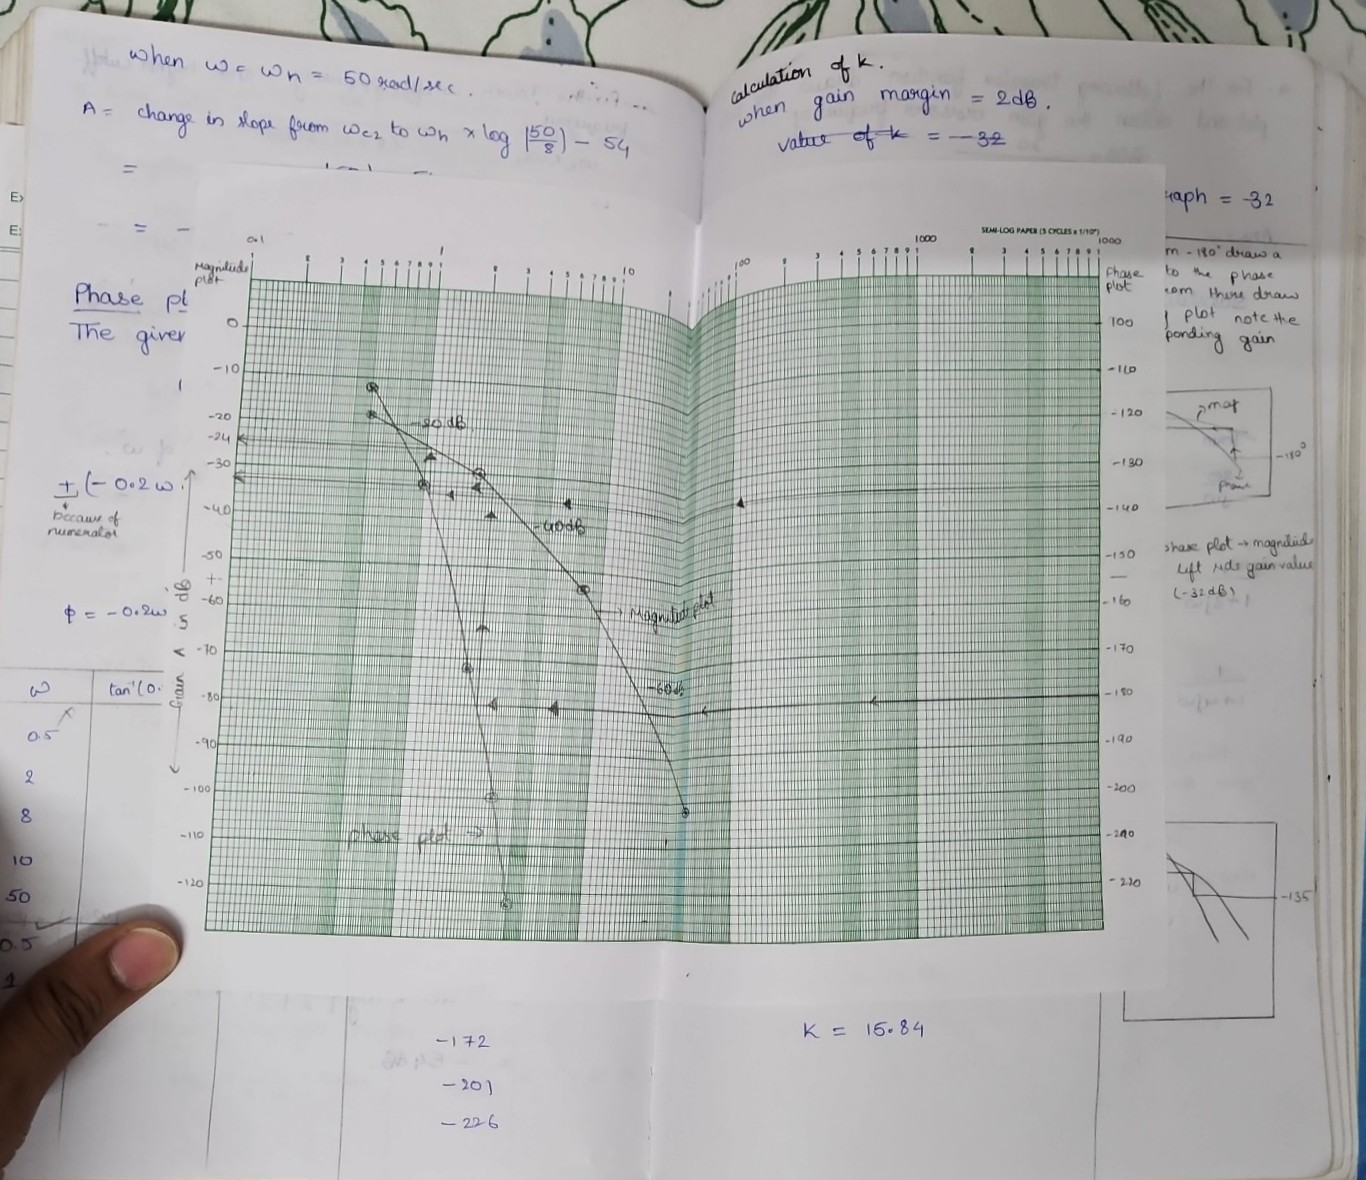 when ω = ωn = 50 rad/sec.
A = change in slope from ωc2 to ωn × log |50/8| - 54
=
= -
Phase pl
The given
+ (- 0.2ω
because of
numerator
φ = -0.2ω
ω tan⁻¹(0.
0.5
2
8
10
50
0.5
1
-172
-201
-226
calculation of k.
when gain margin = 2dB.
value of k = -32
raph = -32
m -180° draw a
to the phase
rom there draw
plot note the
ponding gain
mag
-180°
phase
phase plot → magnitude
left side gain value
(-32dB)
-135
K = 15.84
SEMI-LOG PAPER (5 CYCLES x 1/10")
0.1 1 10 100 1000 1000
2 3 4 5 6 7 8 9 1
Magnitude
plot
0
-10
-20
-24
-30
-40
-50
-60
-70
-80
-90
-100
-110
-120
Gain A in dB
Phase
plot
100
-110
-120
-130
-140
-150
-160
-170
-180
-190
-200
-210
-220
-20 dB
-40dB
→ Magnitude plot
-60dB
phase plot →